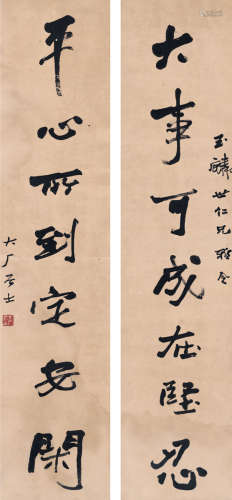 玉麟世仁兄雅
大事可成在堅忍
平心所到定安閑
大厂居士